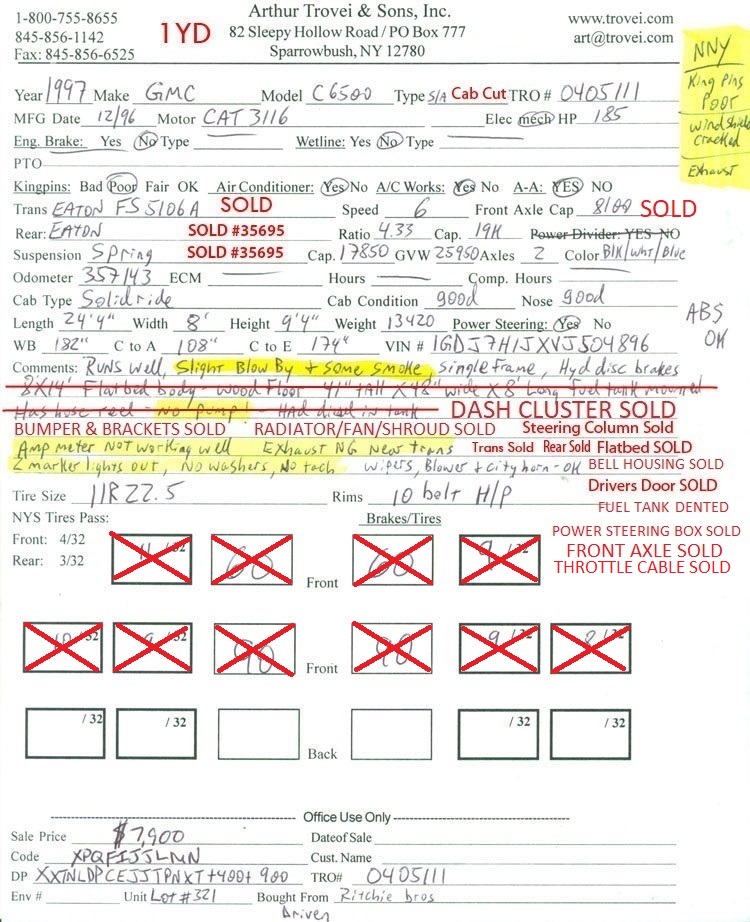 1-800-755-8655
845-856-1142
Fax: 845-856-6525
1YD
Arthur Trovei & Sons, Inc.
82 Sleepy Hollow Road / PO Box 777
Sparrowbush, NY 12780
www.trovei.com
art@trovei.com
NNY
King Pins
Poor
Windshield
Cracked
Exhaust
Year 1997 Make GMC Model C6500 Type S/A Cab Cut TRO # 0405111
MFG Date 12/96 Motor CAT 3116 Elec mech HP 185
Eng. Brake: Yes No Type Wetline: Yes No Type
PTO
Kingpins: Bad Poor Fair OK Air Conditioner: Yes No A/C Works: Yes No A-A: YES NO
Trans EATON FS5106A SOLD Speed 6 Front Axle Cap 8100 SOLD
Rear: EATON SOLD #35695 Ratio 4.33 Cap. 19K Power Divider: YES NO
Suspension Spring SOLD #35695 Cap. 17850 GVW 25950 Axles 2 Color Blk/Wht/Blue
Odometer 357143 ECM Hours Comp. Hours
Cab Type Solid ride Cab Condition good Nose good
Length 24'4" Width 8' Height 9'4" Weight 13420 Power Steering: Yes No
ABS
OK
WB 182" C to A 108" C to E 174" VIN # 1GDJ7H1JXVJ504896
Comments: Runs well, Slight Blow By + Some Smoke, Single Frame, Hyd disc brakes
8X14' Flatbed body - wood Floor 41" tall X 48" wide X 8' Long Fuel tank mounted
Has hose reel - No pump! - HAd diesel in tank DASH CLUSTER SOLD
BUMPER & BRACKETS SOLD RADIATOR/FAN/SHROUD SOLD Steering Column Sold
Amp meter Not working well Exhaust NG Near trans Trans Sold Rear Sold Flatbed SOLD
2 marker lights out, No washers, No tach Wipers, Blower & city horn - OK BELL HOUSING SOLD
Drivers Door SOLD
Tire Size 11R22.5 Rims 10 bolt H/P
FUEL TANK DENTED
NYS Tires Pass: Brakes/Tires
POWER STEERING BOX SOLD
Front: 4/32
FRONT AXLE SOLD
Rear: 3/32
THROTTLE CABLE SOLD
11 /32 60 Front 60 9 /32
10 /32 9 /32 90 Front 90 9 /32 8 /32
/ 32 / 32 Back / 32 / 32
Office Use Only
Sale Price $7,900 Date of Sale
Code XPQFIJJLMN Cust. Name
DP XXTNLDPCEJJTPNXT+400+900 TRO# 0405111
Env # Unit Lot #321 Bought From Ritchie bros
Driven